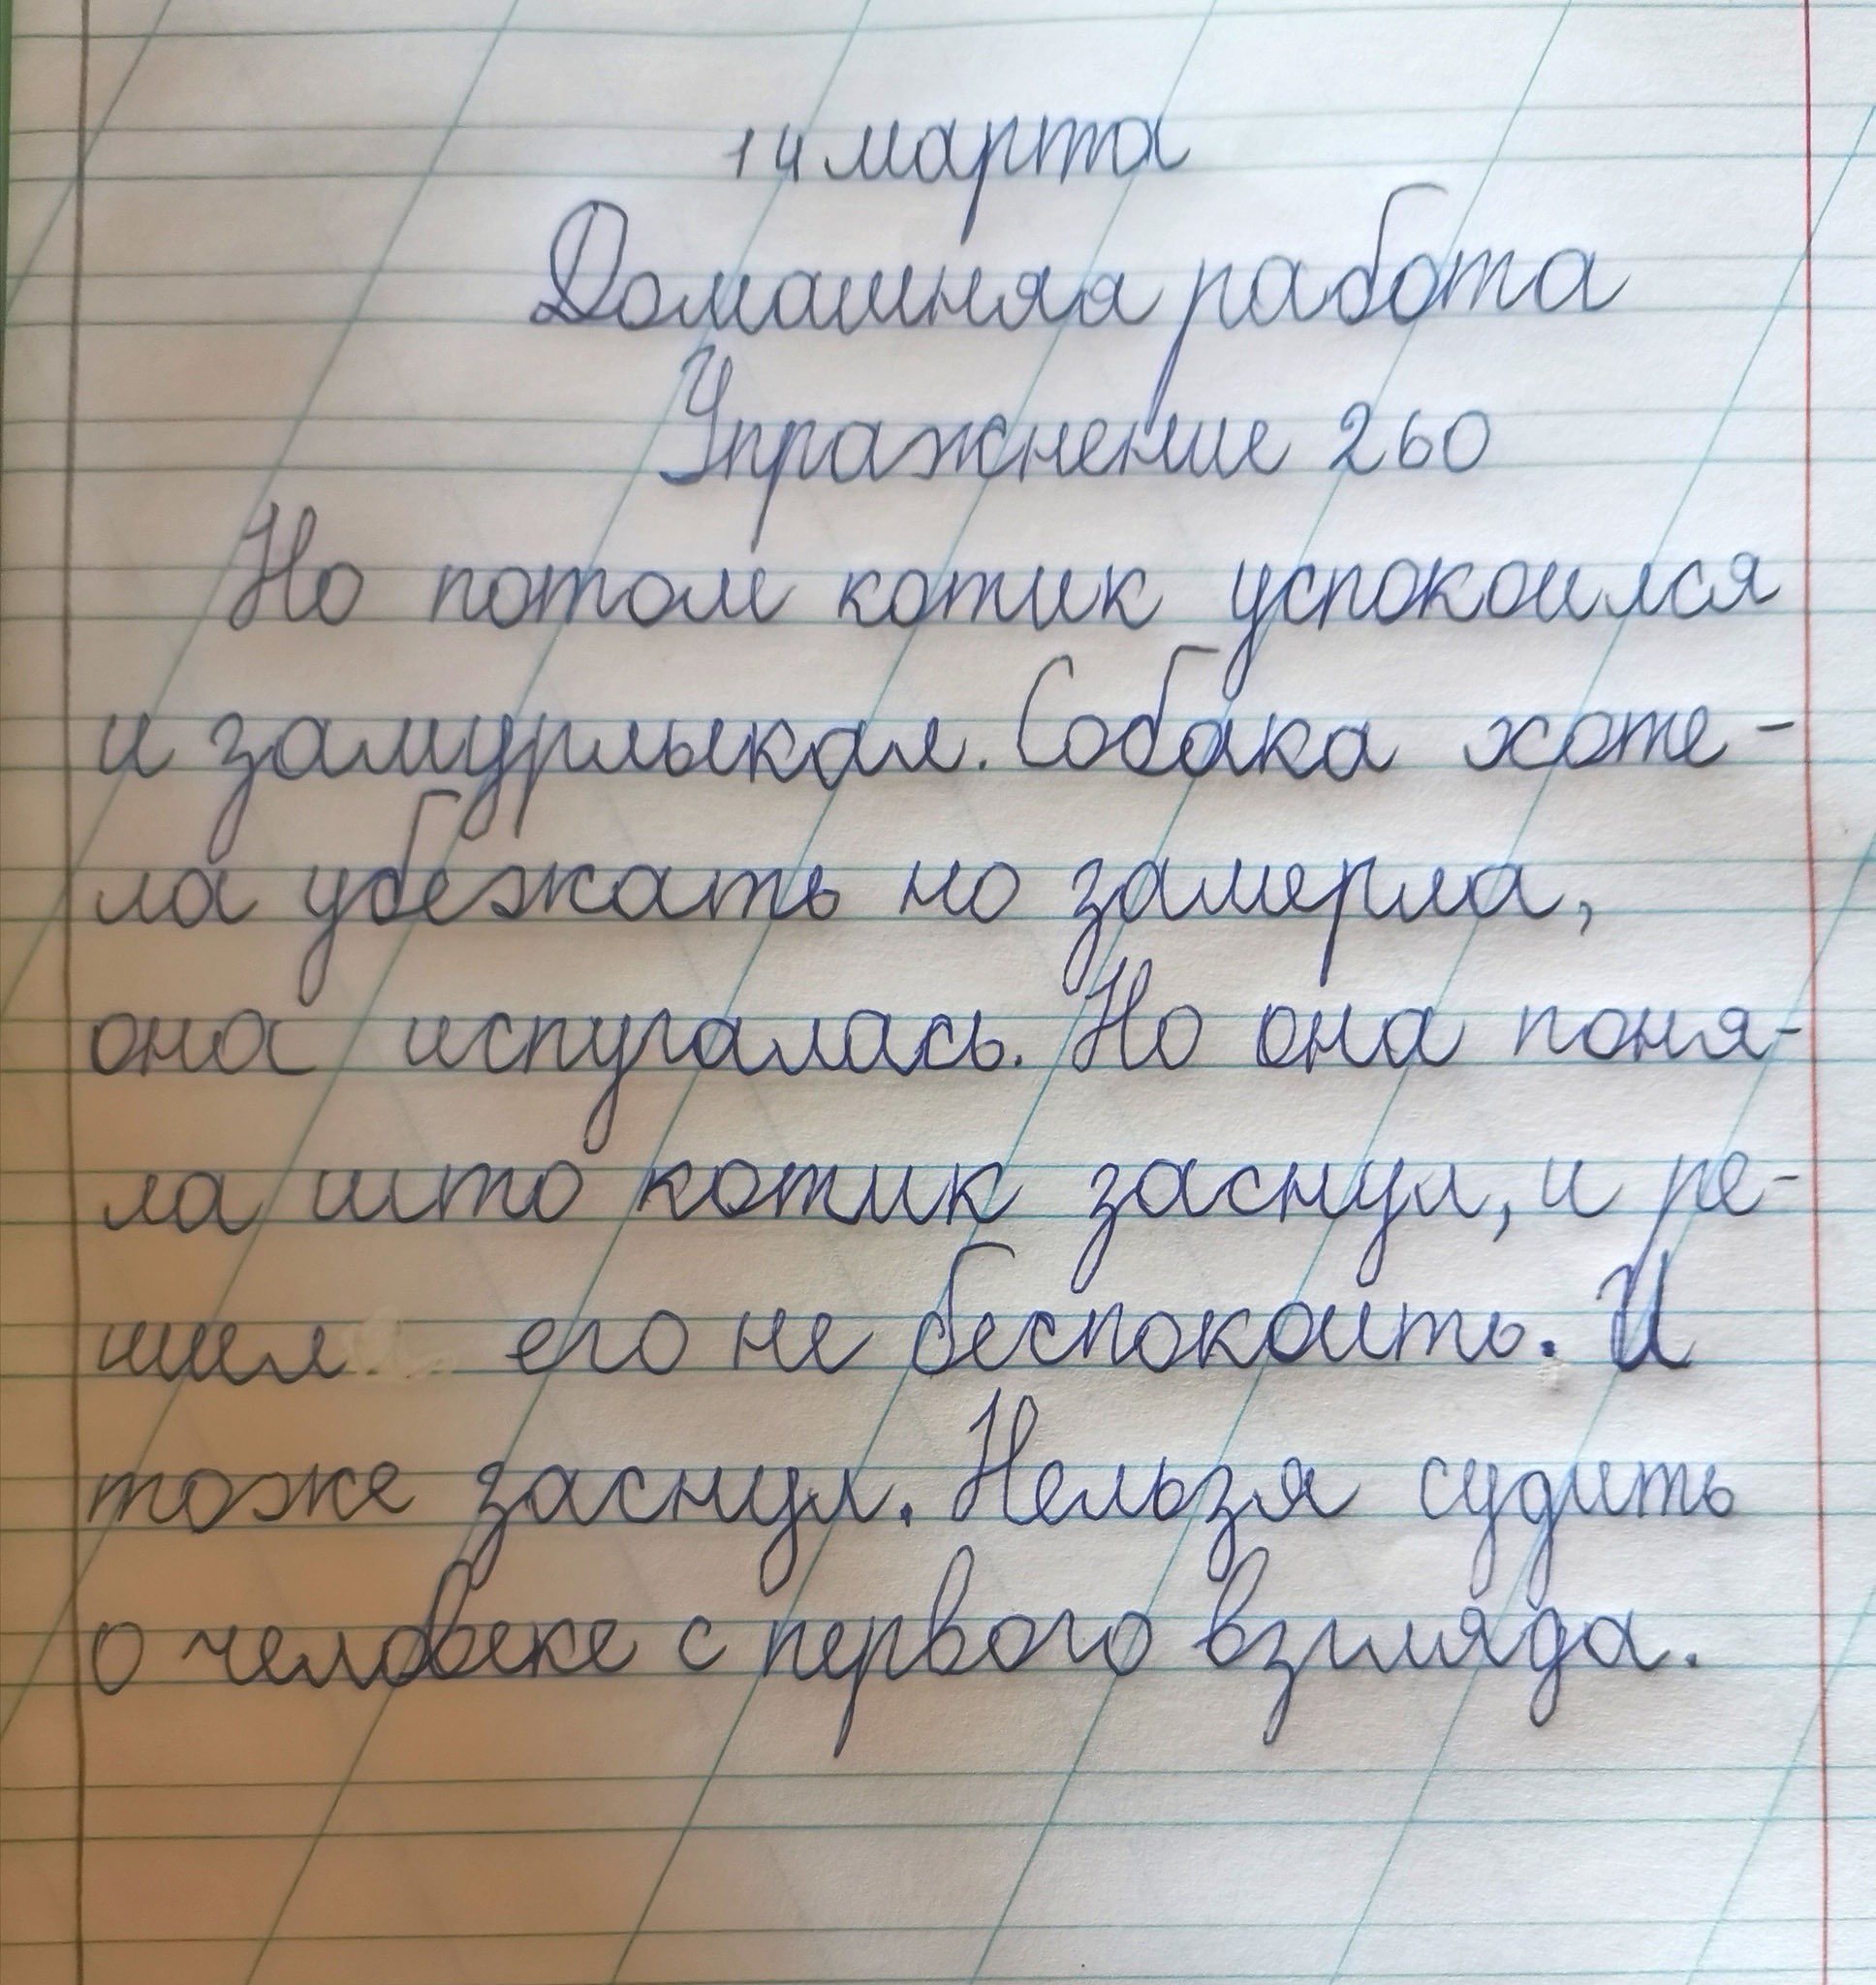 14 марта
Домашняя работа
Упражнение 260
Но потом котик успокоился
и замурлыкал. Собака хоте-
ла убежать но замерла,
она испугалась. Но она поня-
ла што котик заснул, и ре-
шил его не беспокоить. И
тоже заснул. Нельзя судить
о человеке с первого взгляда.